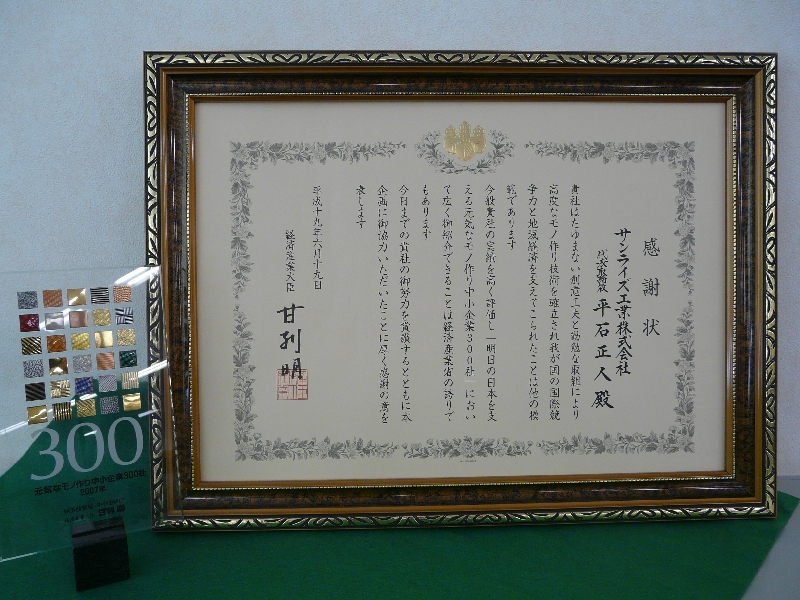 感謝状
サンライズ工業株式会社
代表取締役 平石正人殿
貴社はたゆまない創意工夫と勤勉な取組により
高度なモノ作り技術を確立され我が国の国際競
争力と地域経済を支えてこられたことは他の模
範であります
今般貴社の実績を高く評価し「明日の日本を支
える元気なモノ作り中小企業300社」におい
て広く御紹介できることは経済産業省の誇りで
もあります
今日までの貴社の御努力を賞讃するとともに本
企画に御協力いただいたことに厚く感謝の意を
表します
平成十九年六月十九日
経済産業大臣
甘利明
300
元気なモノ作り中小企業300社
2007年